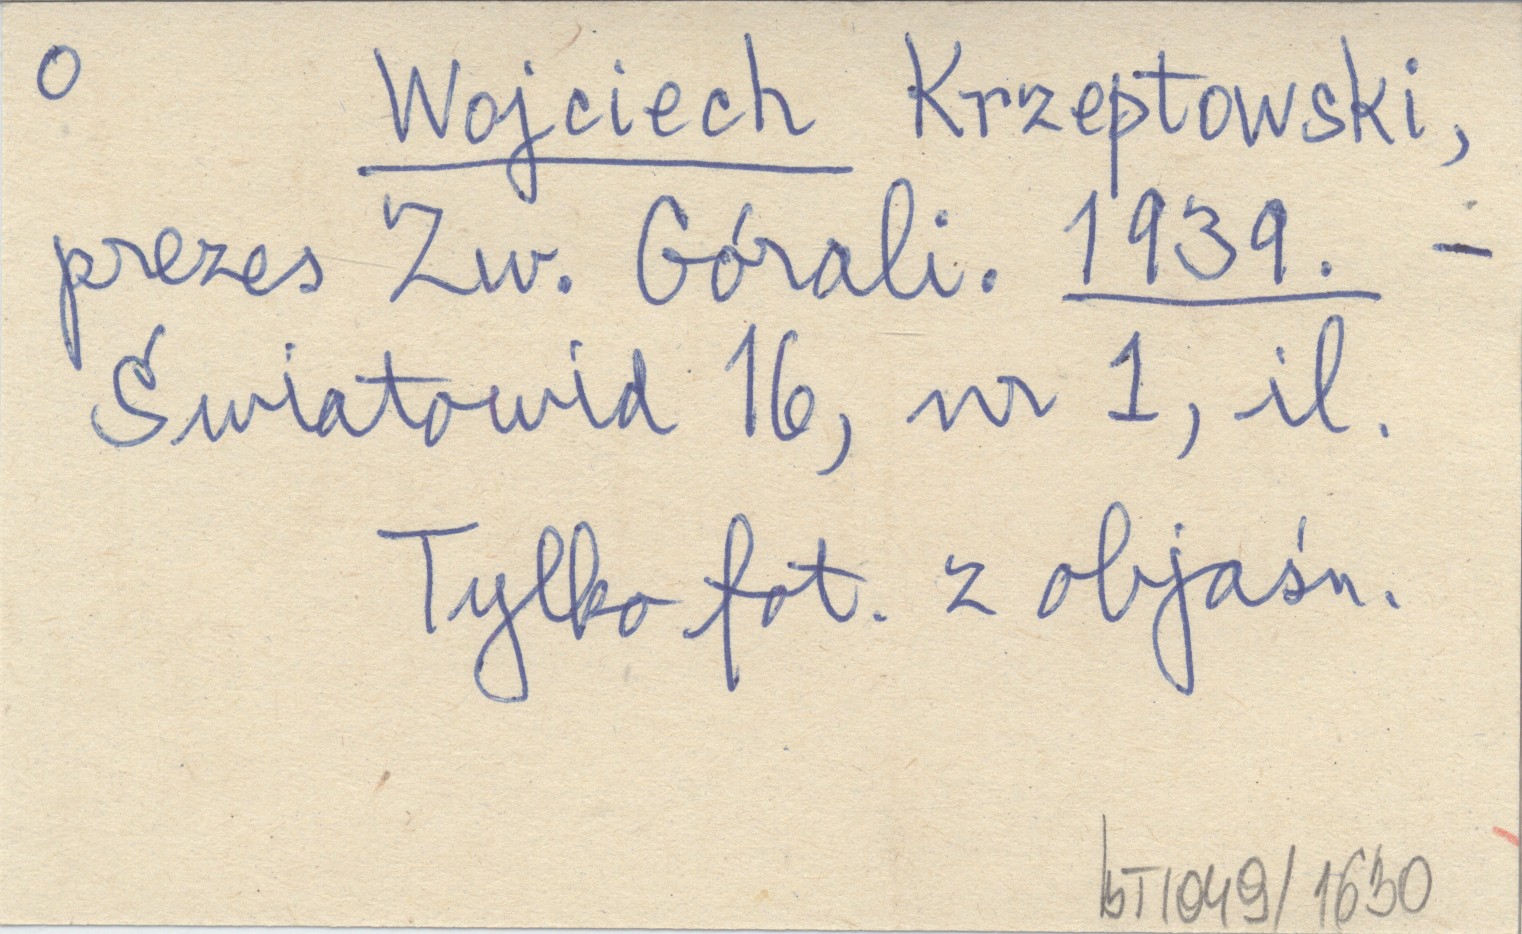 O Wojciech Krzeptowski,
prezes Zw. Górali. 1939. –
Światowid 16, nr 1, il.
Tylko fot. z objaśn.
bT1049/1630